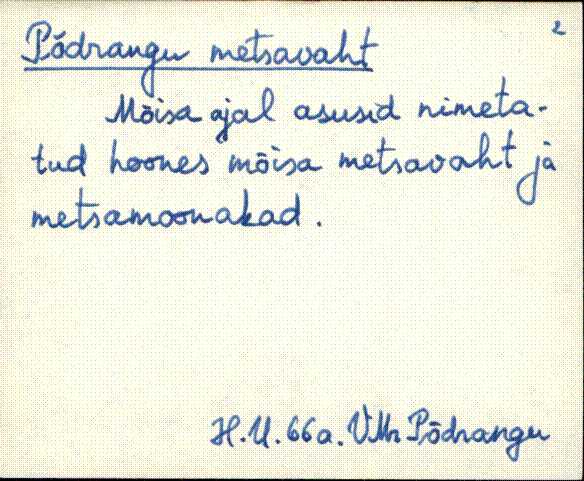 2
Põdrangu metsavaht
Mõisa ajal asusid nimeta-
tud hoones mõisa metsavaht ja
metsamoonakad.
H.U. 66a. VMr Põdrangu